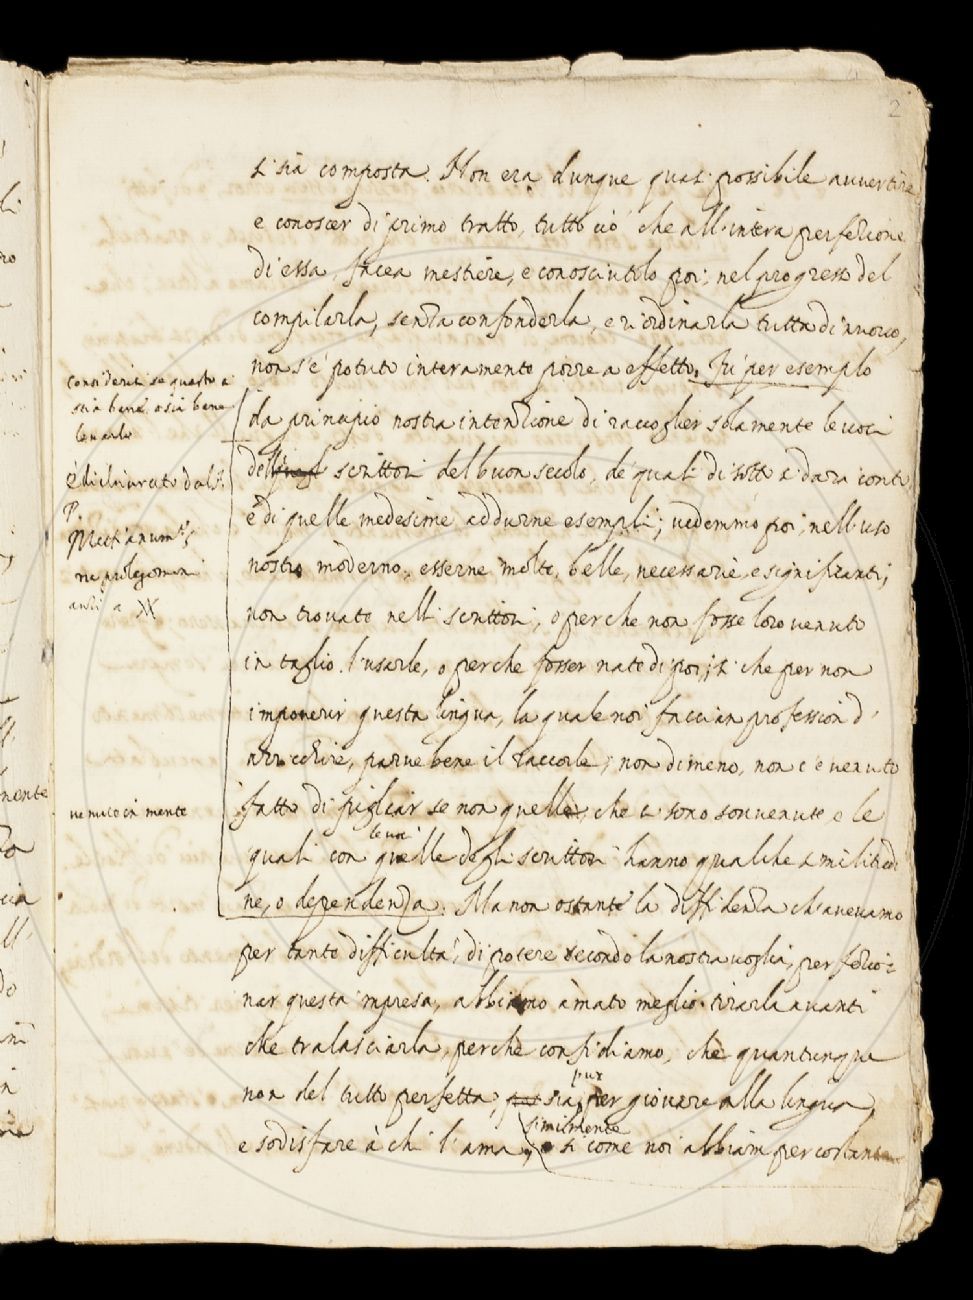 2
si sia composta. Non era dunque quasi possibile avvertire
e conoscer di primo tratto, tutto ciò che all'intera perfezione
di essa, facea mestiere, e conosciutolo poi; nel progresso del
compilarla, senza confonderla, e riordinarla tutta di nuovo,
non s'è potuto interamente porre a effetto. Fù per esemplo
da principio nostra intenzione di raccoglier solamente le voci
degli scrittori del buon secolo, de' quali di sotto si darà conto
e di quelle medesime addurne esempli; vedemmo poi, nell'uso
nostro moderno, esserne molte, belle, necessarie, e significanti;
non trovate nelli scrittori, o perche non fosse loro venuto
in taglio l'usarle, o perche fosser nate di poi; si che per non
impoverir questa lingua, la quale noi facciam profession d'
arricchire, parve bene il raccorle; non di meno, non ci è venuto
fatto di pigliar se non quelle, che ci sono sovvenute e le
le voci
quali con quelle degli scrittori hanno qualche similitudi
ne, o dependenza. Ma non ostante la diffidenza ch'avevamo
per tanto difficultà, di potere secondo la nostra voglia, perfezio=
nar questa impresa, abbiamo amato meglio tirarla avanti
che tralasciarla, perchè confidiamo, che quantunque
pur
non del tutto perfetta, sia per giovare alla lingua,
similmente
e sodisfare à chi l'ama, si come noi abbiam per costante
considerisi se questo
stia bene, o sia bene
levarlo
è dichiarato dal
P.
ne prolegomeni
a XX
in mente